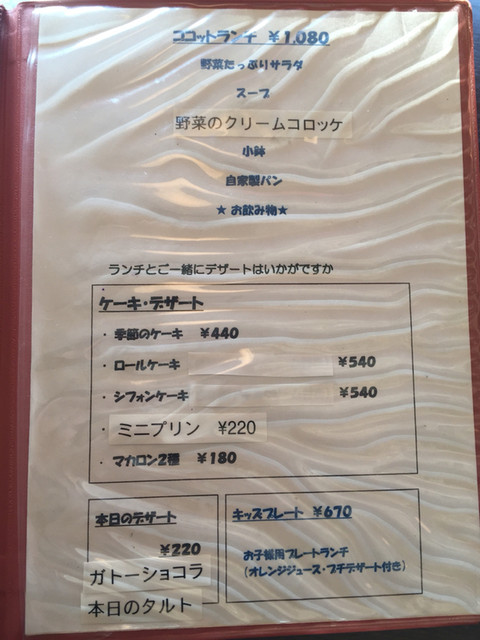 ココットランチ ¥1,080
野菜たっぷりサラダ
スープ
野菜のクリームコロッケ
小鉢
自家製パン
★ お飲み物★
ランチとご一緒にデザートはいかがですか
ケーキ・デザート
・季節のケーキ ¥440
・ロールケーキ ¥540
・シフォンケーキ ¥540
・ミニプリン ¥220
・マカロン2種 ¥180
本日のデザート
¥220
ガトーショコラ
本日のタルト
キッズプレート ¥670
お子様用プレートランチ
(オレンジジュース・プチデザート付き)